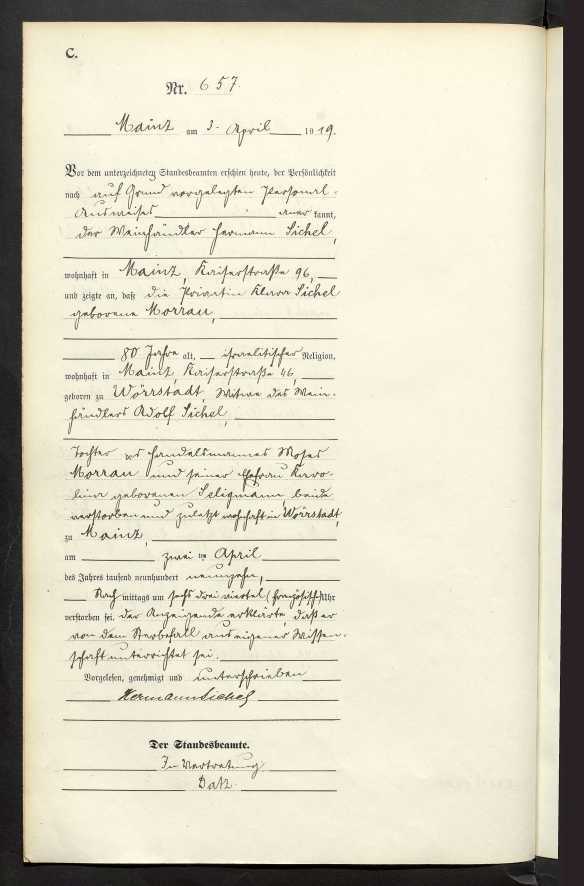 C.
Nr. 657.
Mainz am 3. April 1919.
Vor dem unterzeichneten Standesbeamten erschien heute, der Persönlichkeit
nach auf Grund vorgelegten Personal-
Ausweises aner kannt,
der Weinhändler Hermann Sichel,
wohnhaft in Mainz, Kaiserstraße 96,
und zeigte an, daß die Privatin Klara Sichel
geborene Morrau,
80 Jahre alt, israelitischer Religion,
wohnhaft in Mainz, Kaiserstraße 46,
geboren zu Wörrstadt, Witwe des Wein-
händlers Adolf Sichel,
Tochter des Handelsmannes Moses
Morrau und seiner Ehefrau Karo-
lina geborenen Seligmann, beide
verstorben und zuletzt wohnhaft in Wörrstadt,
zu Mainz,
am zwei ten April
des Jahres tausend neunhundert neunzehn,
Nach mittags um sechs drei viertel (französisch) Uhr
verstorben sei. der Anzeigende erklärte, daß er
von dem Sterbefall aus eigener Wissen-
schaft unterrichtet sei.
Vorgelesen, genehmigt und unterschrieben
Hermann Sichel
Der Standesbeamte.
In Vertretung